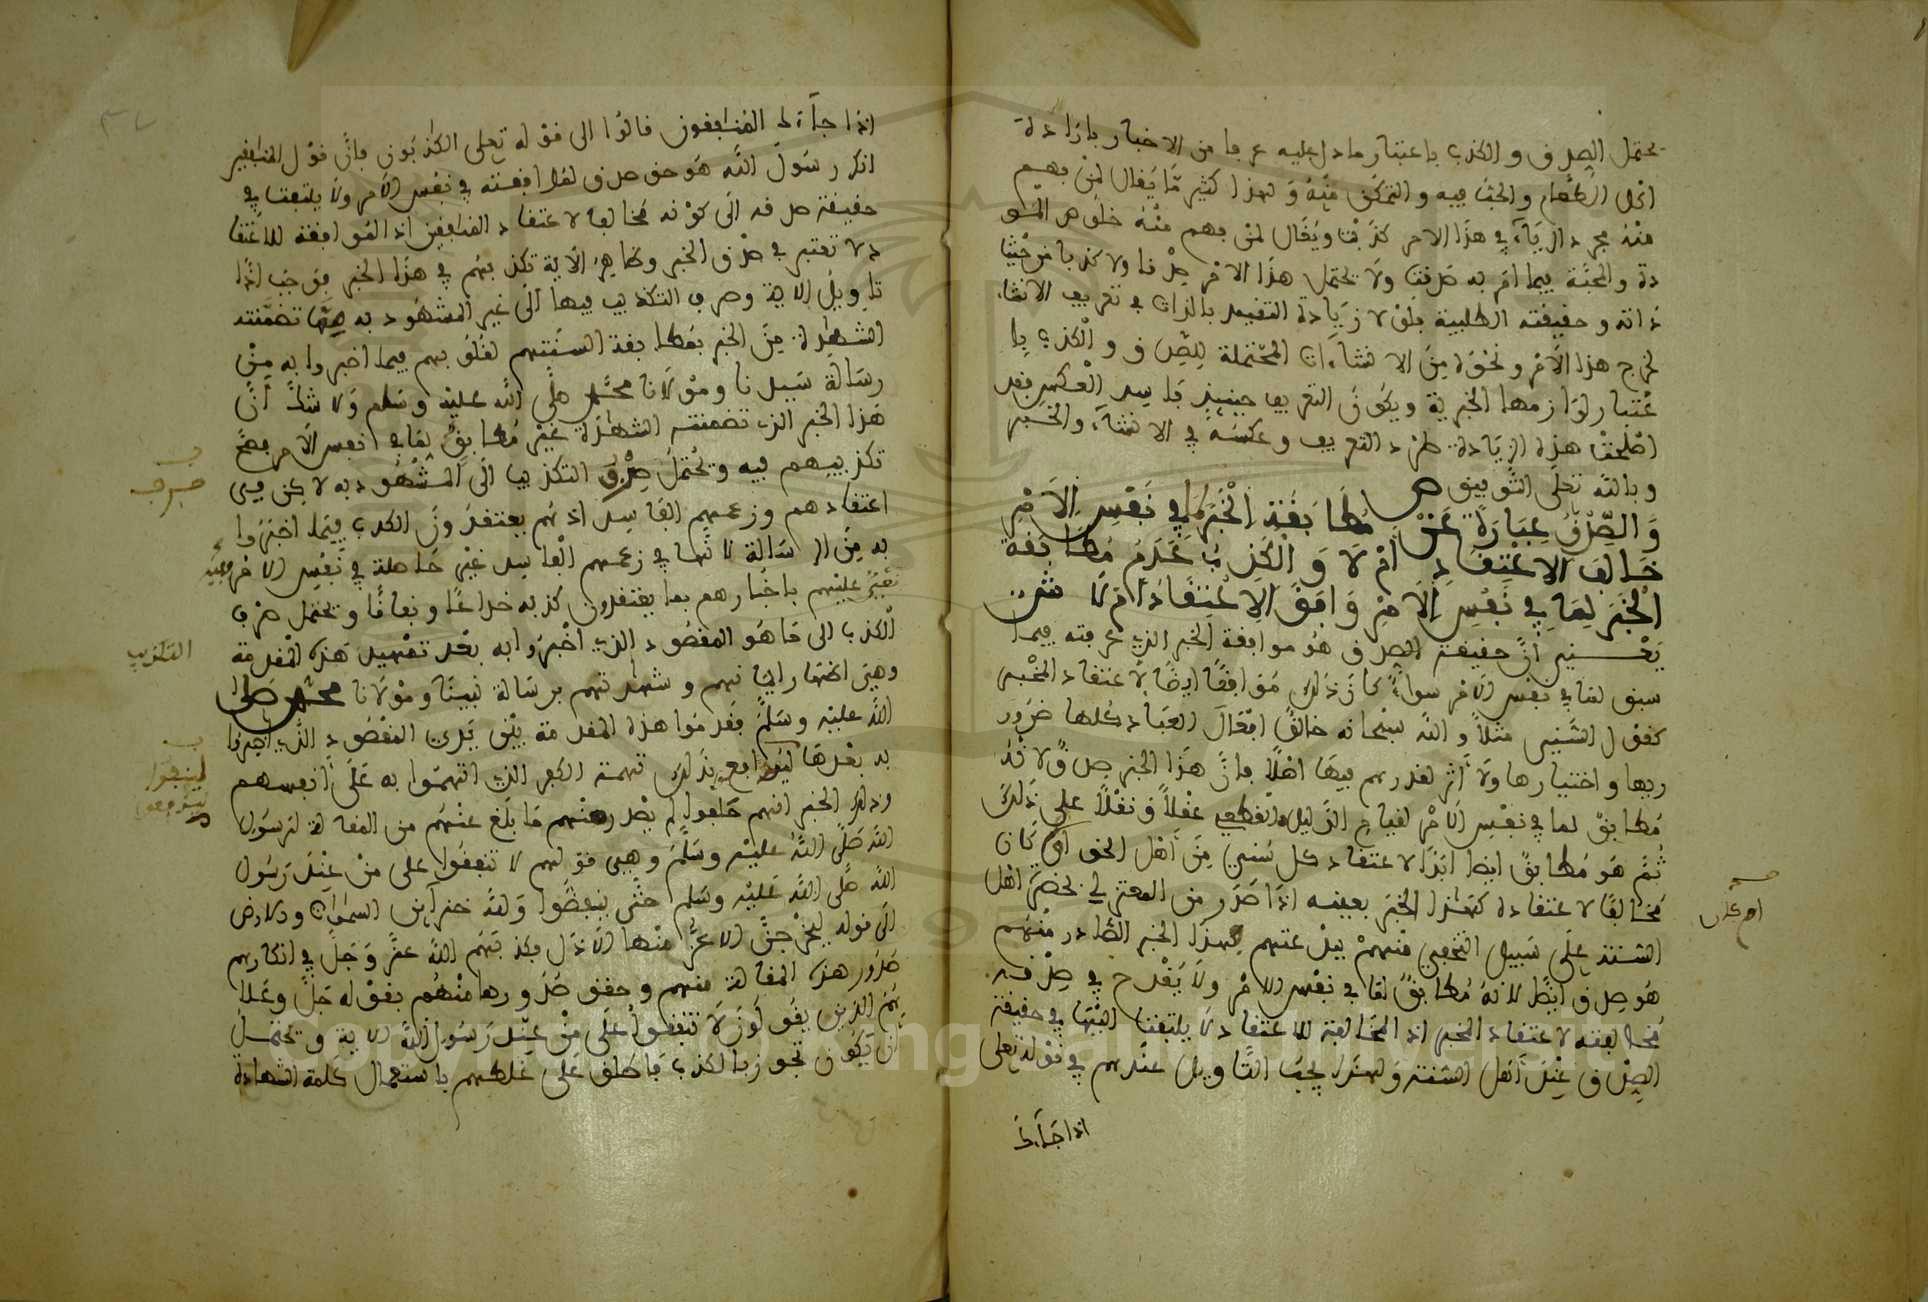 يحتمل الصدق والكذب باعتبار ما دل عليه عرفا من الاخبار بارادة
اكل الطعام والحث فيه والتمكن منه ولهذا كثير ما يقال لمن فهم
منه مجرد الرياء في هذا الامر كذبت ويقال لمن فهم منه خلوص المو
دة والمحبة فيما امر به صدقت ولا يحتمل هذا الامر صدقا ولا كذبا من حيث
ذاته وحقيقته الطلبية فلو لا زيادة التقييد بالذات في تعريف الانشاء
لخرج هذا الامر ونحوه من الانشاءات المحتملة للصدق والكذب با
عتبار لوازمها الخبرية ويكون التعريف حينئذ فاسد العكس فقد
اصلحت هذه الزيادة طرد التعريف وعكسه في الانشاء والخبر
وبالله تعلى التوفيق ص
والصدق عبارة عن مطابقة الخبر لما في نفس الامر
خالف الاعتقاد ام لا والكذب عدم مطابقة
الخبر لما في نفس الامر وافق الاعتقاد ام لا ش
يعني ان حقيقة الصدق هو موافقة الخبر الذي عرفته فيما
سبق لما في نفس الامر سواء كان ذلك موافقا ايضا لاعتقاد المخبر
كقول السني مثلا والله سبحانه خالق افعال العباد كلها ضرور
ريها واختيارها ولا اثر لقدرهم فيها اصلا فان هذا الخبر صدق لا نه
مطابق لما في نفس الامر لقيام الدليل القطعي عقلا ونقلا على ذلك
ثم هو مطابق ايضا ابدا لاعتقاد كل سني من اهل الحق او كان
مخالفا لاعتقاده كهذا الخبر بعينه اذا صدر من المعتزلي بحضرة اهل
السنة على سبيل التخفي منهم ببدعتهم فهذا الخبر الصادر منهم
هو صدق ايضا لانه مطابق لما في نفس الامر ولا يقدح في صدقه
مخالفته لاعتقاد المخبر اذ المخالفة للاعتقاد لا يلتفت اليها في حقيقة
الصدق عند اهل السنة ولهذا يجب التاويل عندهم في قوله تعلى
اذا جاءك
اذا جاءك المنافقون قالوا الى قوله تعلى الكذبون فان قول المنافقين
انك رسول الله هو حق صدق لموافقته في نفس الامر ولا يلتفت في
حقيقة صدقه الى كونه مخالفا لاعتقاد المنافقين اذ الموافقة للاعتقا
د لا تعتبر في صدق الخبر وظاهر الاية تكذيبهم في هذا الخبر فوجب اذا
تاويل الاية وصرف التكذيب فيها الى غير المشهود به مما تضمنته
الشهادة من الخبر بمطابقة السنتهم لقلوبهم فيما اخبروا به من
رسالة سيدنا ومولانا محمد صلى الله عليه وسلم ولا شك ان
هذا الخبر الذي تضمنته الشهادة غير مطابق لما في نفس الامر فصح
تكذيبهم فيه ويحتمل صرف التكذيب الى المشهود به لاكن في
اعتقادهم وزعمهم الفاسد اذ هم يعتقدون الكذب فيما اخبروا
به من الرسالة لانها في زعمهم الفاسد غير حاصلة في نفس الامر
عليهم باخبارهم بما يعتقدون كذبه خداعا ونفاقا ويحتمل صرف
الكذب الى ما هو المقصود الذي اخبروا به بعد تمهيد هذه المقدمة
وهي اظهار ايمانهم وشهادتهم برسالة نبينا ومولانا محمد صلى
الله عليه وسلم فقدموا هذه المقدمة بين يدي المقصود الذي اخبروا
به بعدها بذلك تهمة الكفر الذي اتهموا به على انفسهم
وذلك الخبر انهم حلفوا لم يصدر منهم ما بلغ عنهم من المقالة لرسول
الله صلى الله عليه وسلم وهي قولهم لا تنفقوا على من عند رسول
الله صلى الله عليه وسلم حتى ينفضوا ولله خزائن السموات والارض
الى قوله ليخرجن الاعز منها الاذل فكذبهم الله عز وجل في انكارهم
صدور هذه المقالة منهم وحقق صدورها منهم بقوله جل وعلا
هم الذين يقولون لا تنفقوا على من عند رسول الله الاية ويحتمل
ان يكون تجوز بالكذب فاطلق على غلطهم باستعمال كلمة الشهادة
صرف
التكذيب
لينفوا